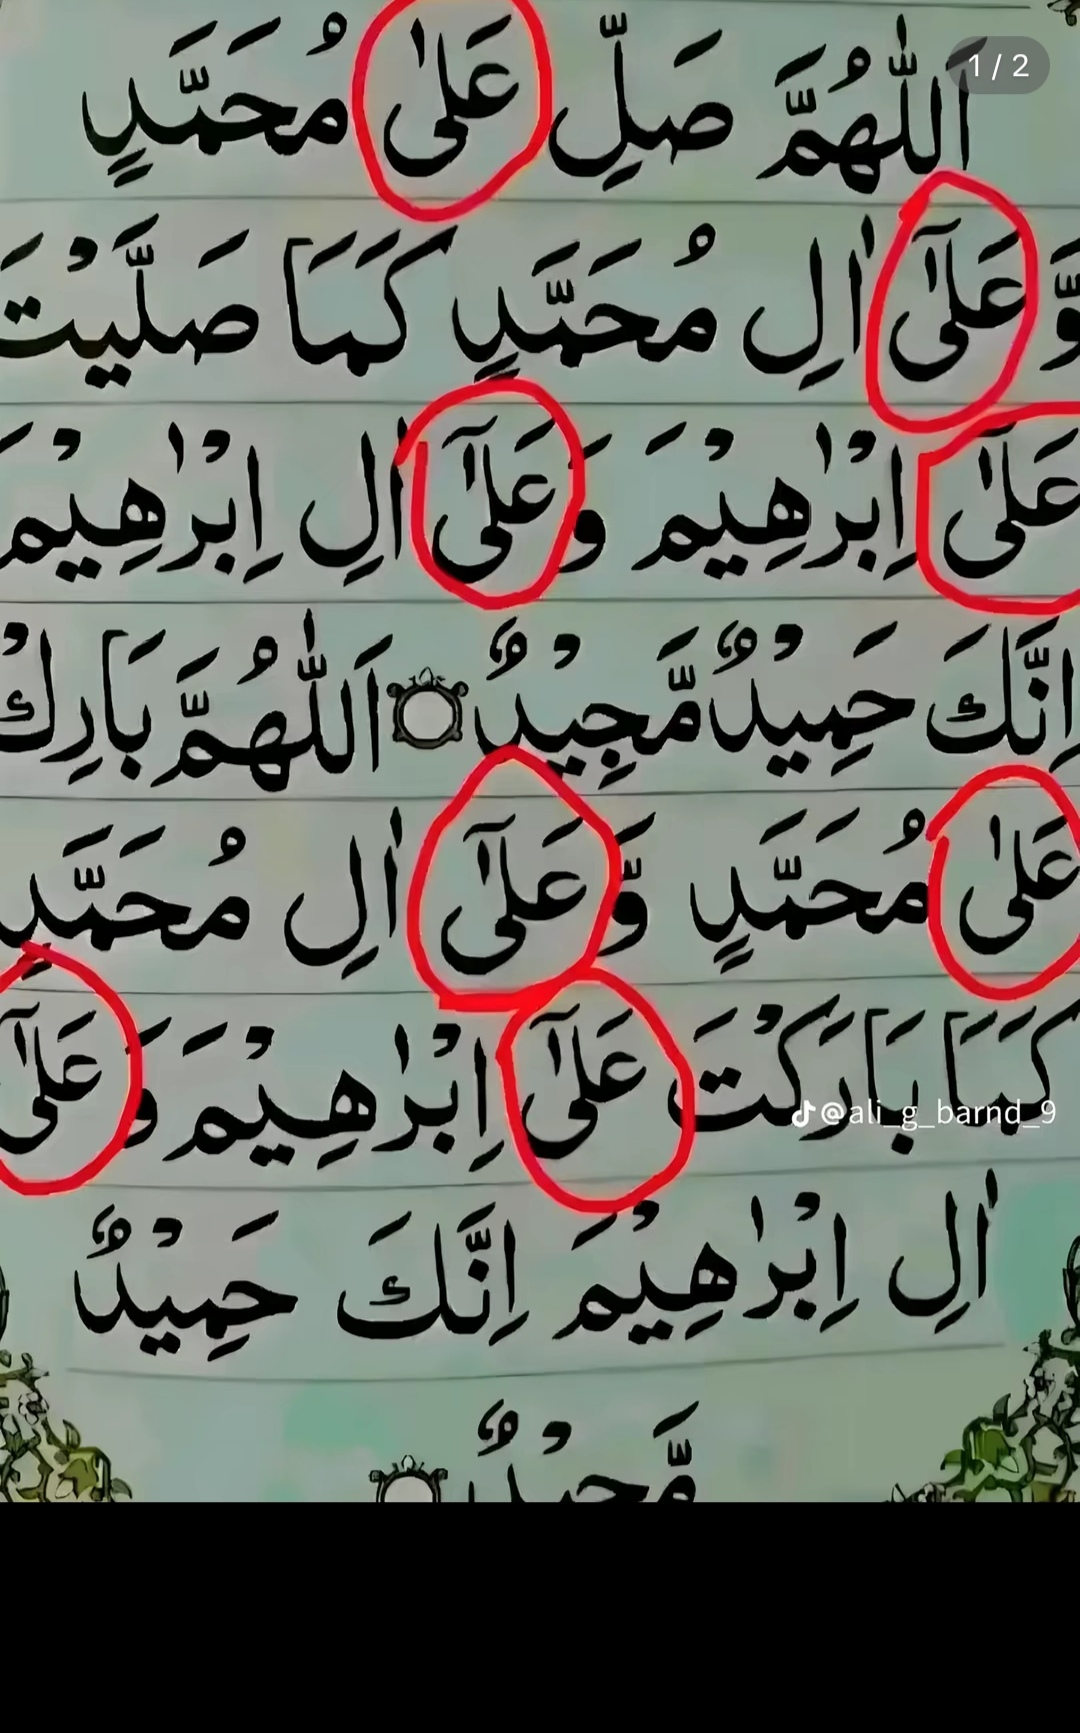 1 / 2
اَللّٰهُمَّ صَلِّ عَلٰى مُحَمَّدٍ
وَّعَلٰٓى اٰلِ مُحَمَّدٍ كَمَا صَلَّيْتَ
عَلٰٓى اِبْرٰهِيْمَ وَعَلٰٓى اٰلِ اِبْرٰهِيْمَ
اِنَّكَ حَمِيْدٌ مَّجِيْدٌ اَللّٰهُمَّ بَارِكْ
عَلٰى مُحَمَّدٍ وَّعَلٰٓى اٰلِ مُحَمَّدٍ
كَمَا بَارَكْتَ عَلٰٓى اِبْرٰهِيْمَ وَعَلٰٓى
@ali_g_barnd_9
اٰلِ اِبْرٰهِيْمَ اِنَّكَ حَمِيْدٌ
مَّجِيْدٌ